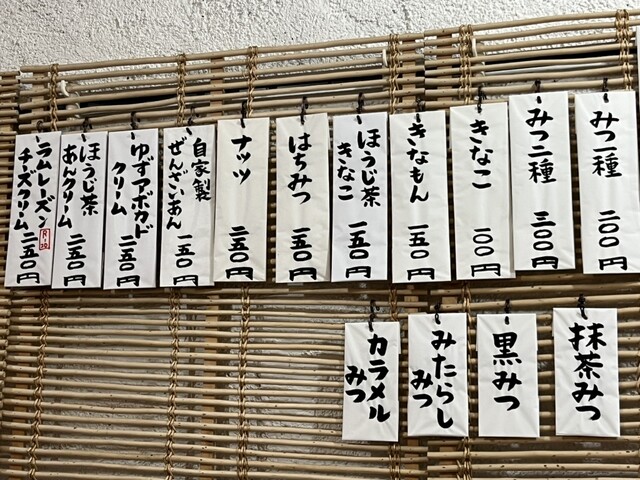 みつ一種 二〇〇円
みつ二種 三〇〇円
きなこ 一〇〇円
きなもん 一五〇円
ほうじ茶
きなこ 一五〇円
はちみつ 二五〇円
ナッツ 二五〇円
自家製
ぜんざいあん 一五〇円
ゆずアボカド
クリーム 二五〇円
ほうじ茶
あんクリーム 二五〇円
ラムレーズン
チーズクリーム 二五〇円
抹茶みつ
黒みつ
みたらし
みつ
カラメル
みつ